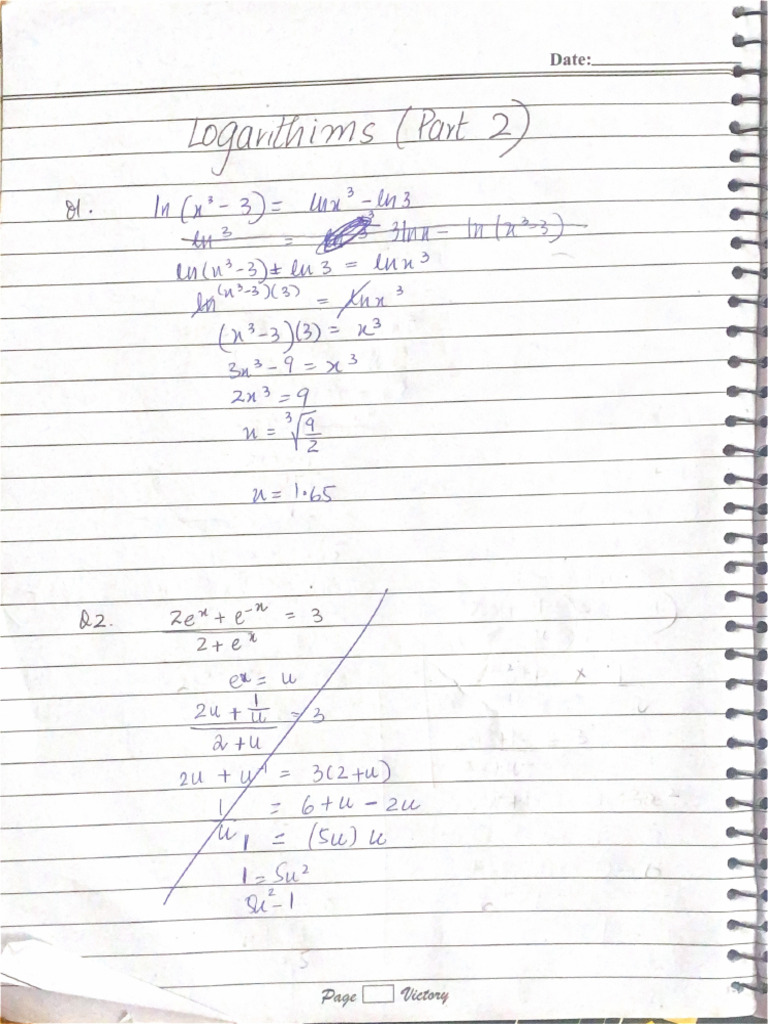 Date:
Logarithims (Part 2)
Q1. ln(x³ - 3) = lnx³ - ln3
ln³ = 3lnx - ln(x³-3)
ln(x³-3) + ln3 = lnx³
ln(x³-3)(3) = lnx³
(x³-3)(3) = x³
3x³ - 9 = x³
2x³ = 9
x = ³√(9/2)
x = 1.65
Q2. (2eˣ + e⁻ˣ)/(2 + eˣ) = 3
eˣ = u
(2u + 1/u)/(2 + u) = 3
2u + u⁻¹ = 3(2+u)
1/u = 6 + u - 2u
1 = (5u) u
1 = 5u²
5u² - 1
Page Victory